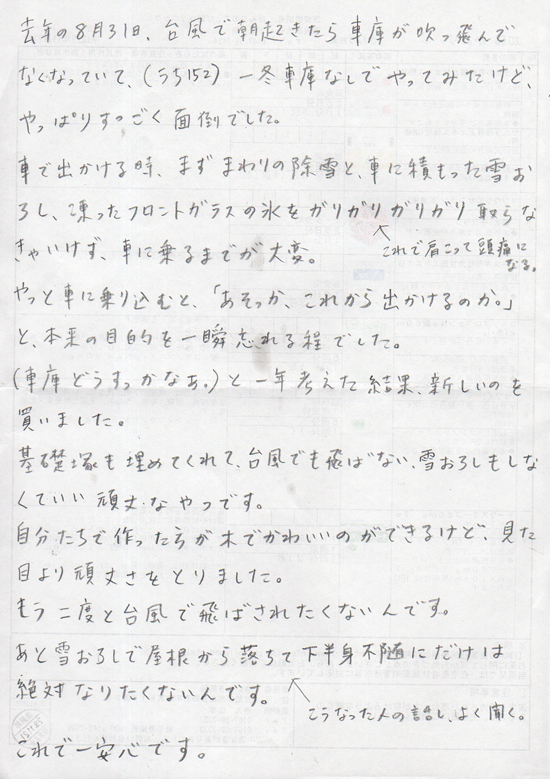 去年の8月31日、台風で朝起きたら車庫が吹っ飛んで
なくなっていて、(うち152) 一冬車庫なしでやってみたけど、
やっぱりすっごく面倒でした。
車で出かける時、まずまわりの除雪と、車に積もった雪お
ろし、凍ったフロントガラスの氷をガリガリガリガリ取らな
きゃいけず、車に乗るまでが大変。
これで肩こって頭痛に
なる。
やっと車に乗り込むと、「あそっか、これから出かけるのか。」
と、本来の目的を一瞬忘れる程でした。
(車庫どうすっかなあ。)と一年考えた結果、新しいのを
買いました。
基礎塚も埋めてくれて、台風でも飛ばない、雪おろしもしな
くていい頑丈なやつです。
自分たちで作った方が木でかわいいのができるけど、見た
目より頑丈さをとりました。
もう二度と台風で飛ばされたくないんです。
あと雪おろしで屋根から落ちて下半身不随にだけは
絶対なりたくないんです。
こうなった人の話し、よく聞く。
これで一安心です。